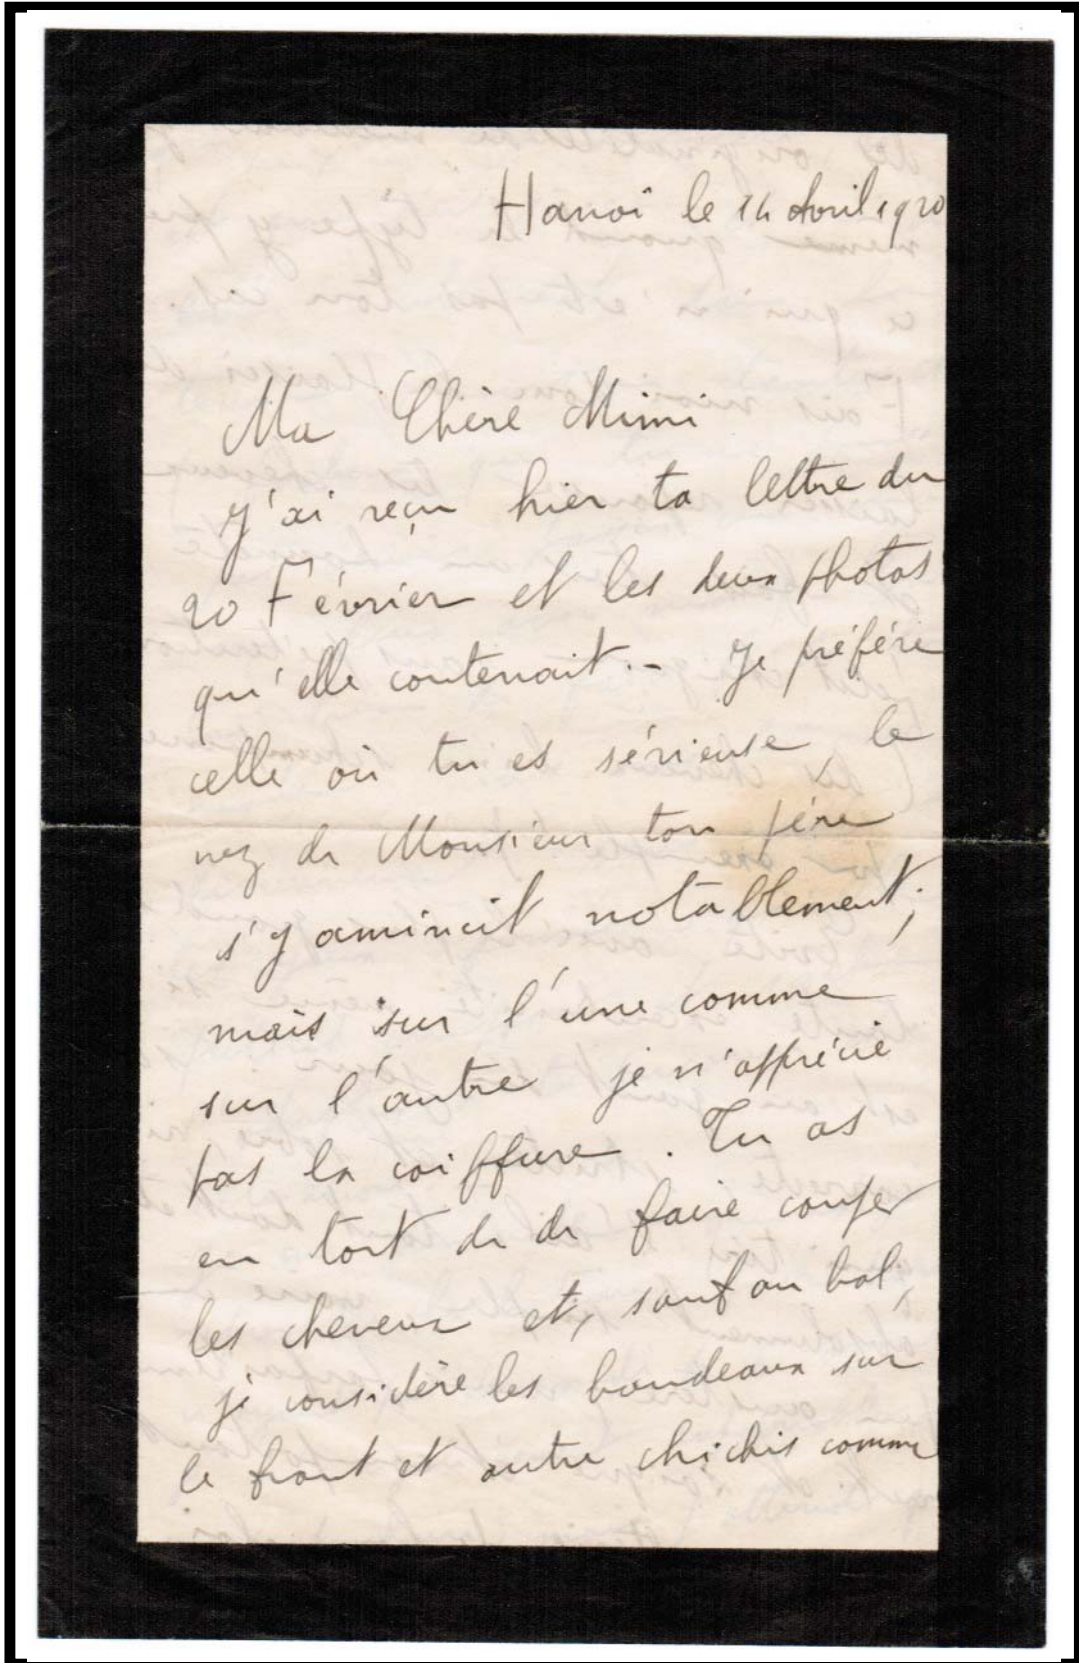 Hanoï le 14 Avril 1920
Ma Chère Mimi
J'ai reçu hier ta lettre du
20 Février et les deux photos
qu'elle contenait. - Je préfère
celle où tu es sérieuse, le
nez de Monsieur ton père
s'y amincit notablement;
mais sur l'une comme
sur l'autre je n'apprécie
pas la coiffure. Tu as
eu tort de de faire couper
les cheveux et, sauf au bal,
je considère les bandeaux sur
le front et autre chichis comme